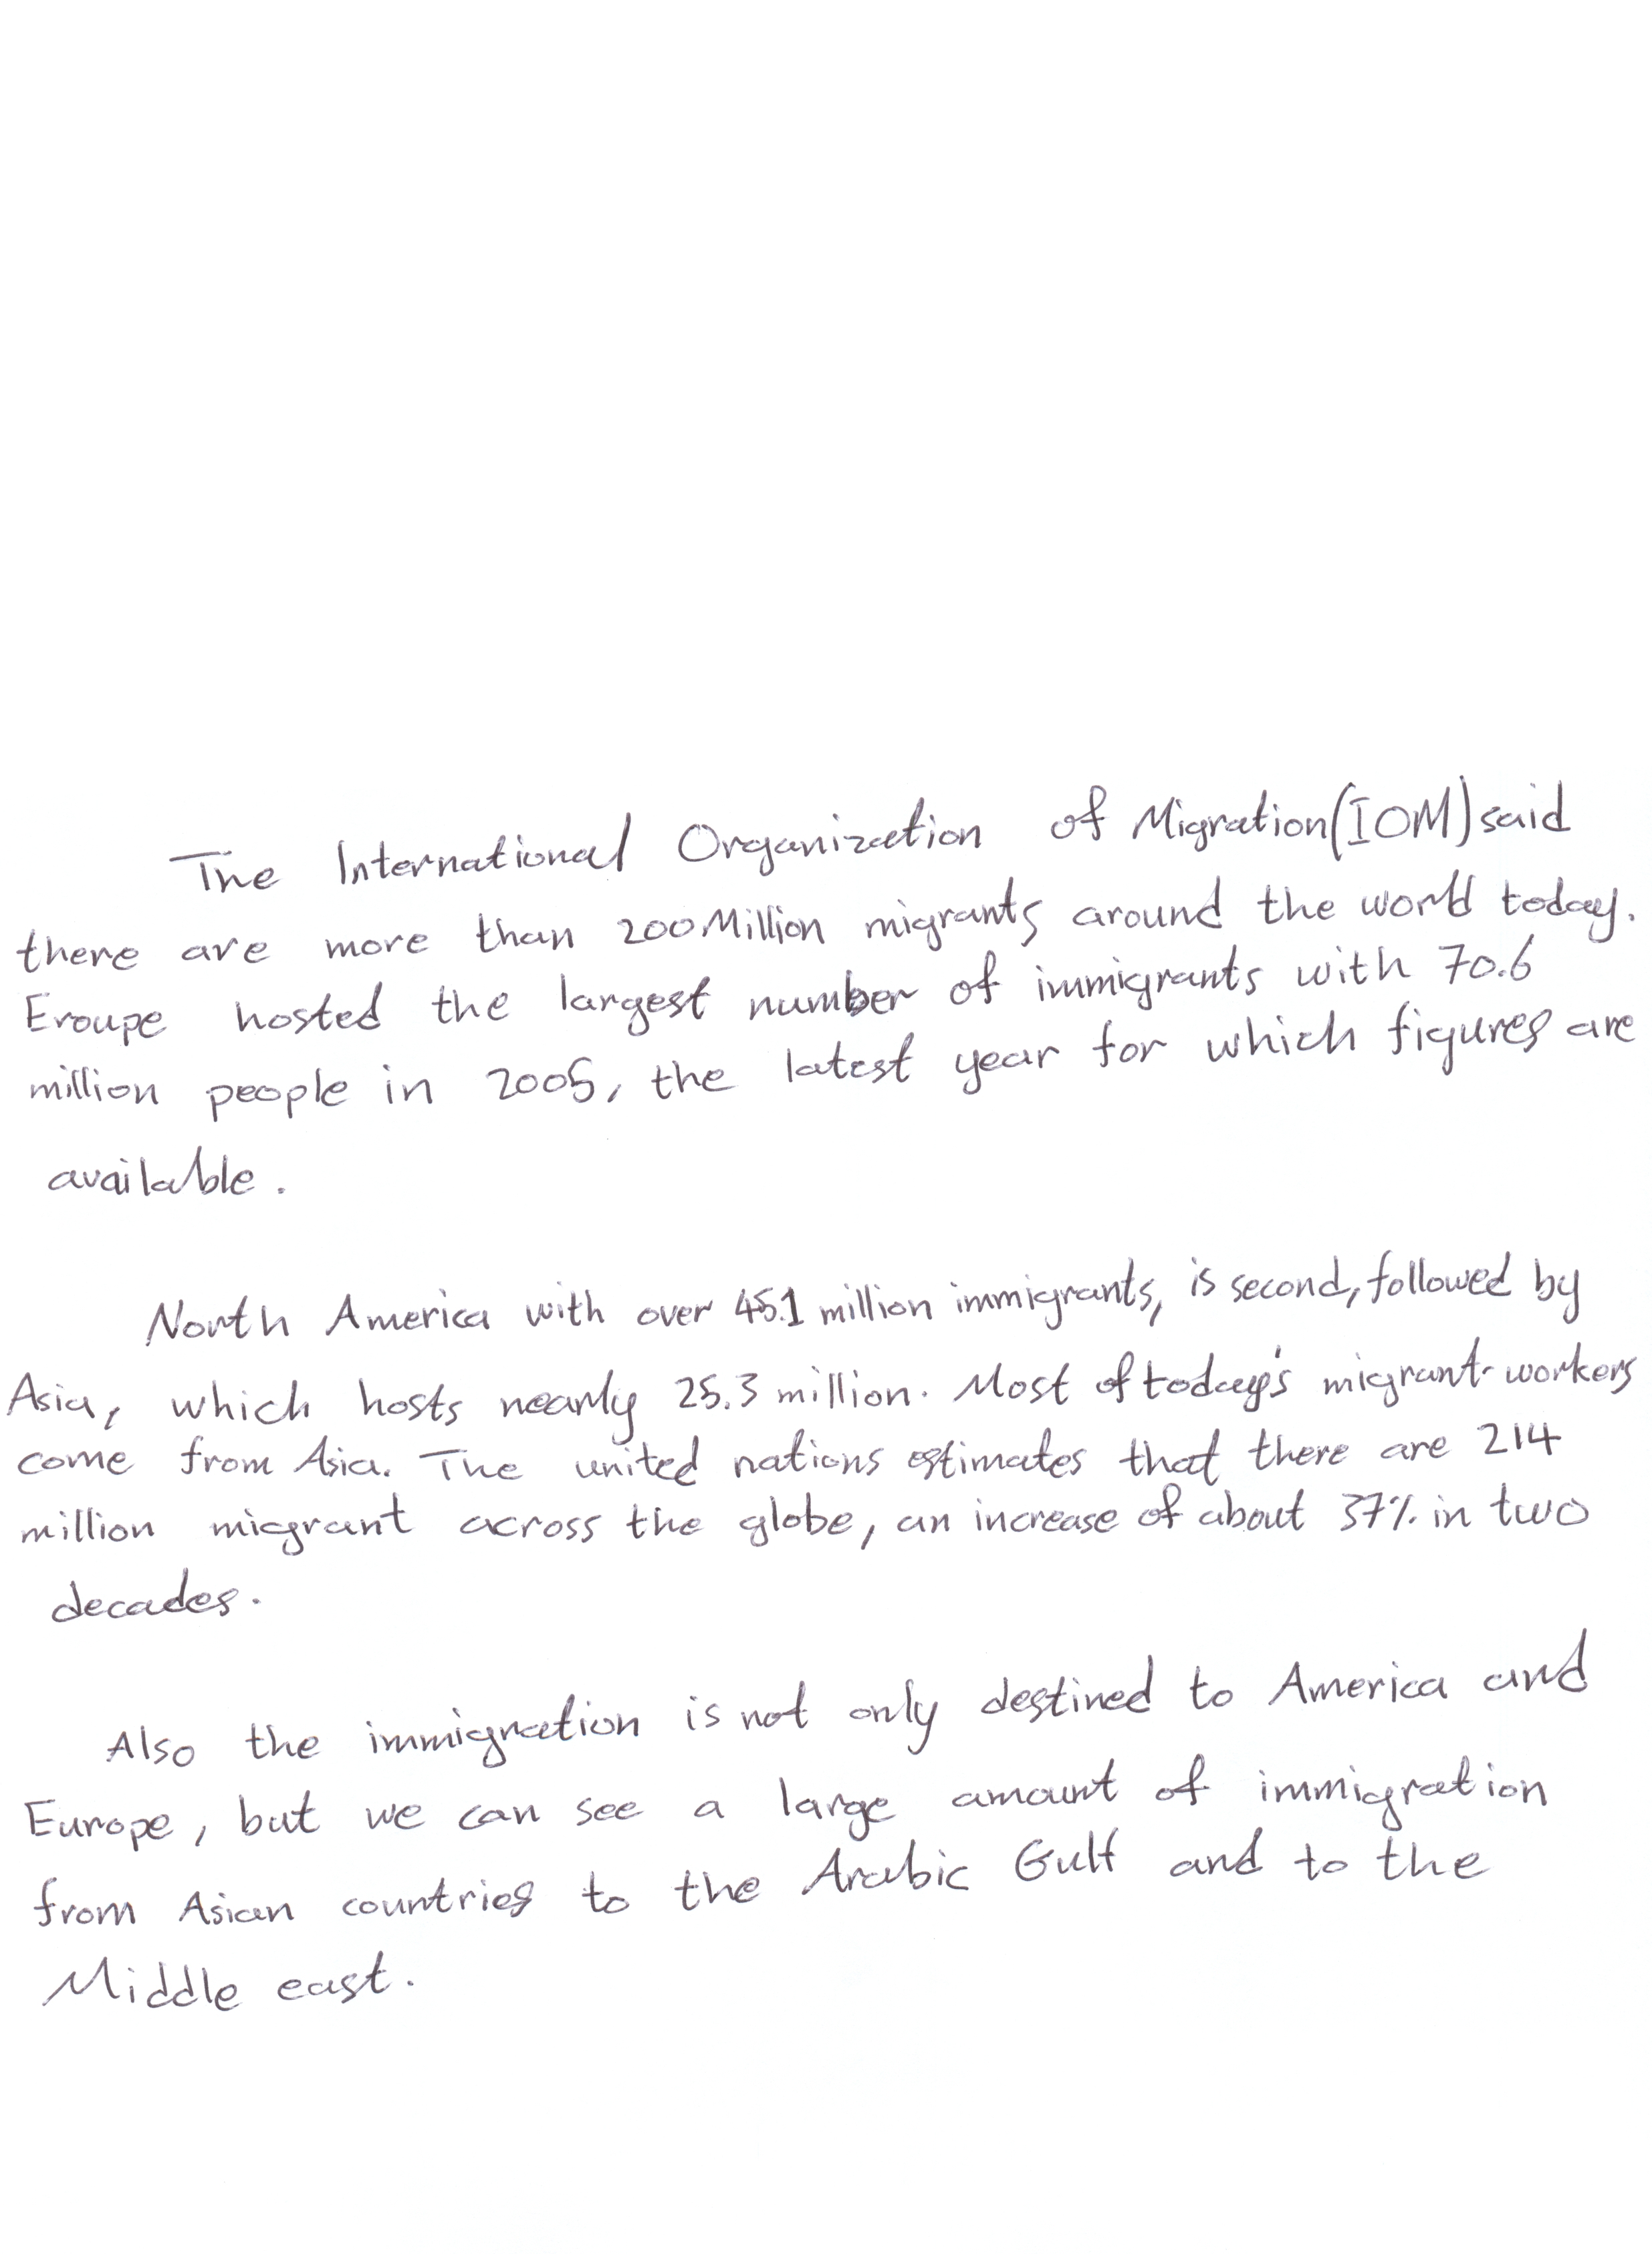 The International Organization of Migration(IOM) said
there are more than 200 Million migrants around the world today.
Eroupe hosted the largest number of immigrants with 70.6
million people in 2005, the latest year for which figures are
available.
North America with over 45.1 million immigrants, is second, followed by
Asia, which hosts nearly 25.3 million. Most of today's migrant-workers
come from Asia. The united nations estimates that there are 214
million migrant across the globe, an increase of about 37% in two
decades.
Also the immigration is not only destined to America and
Europe, but we can see a large amount of immigration
from Asian countries to the Arabic Gulf and to the
Middle east.